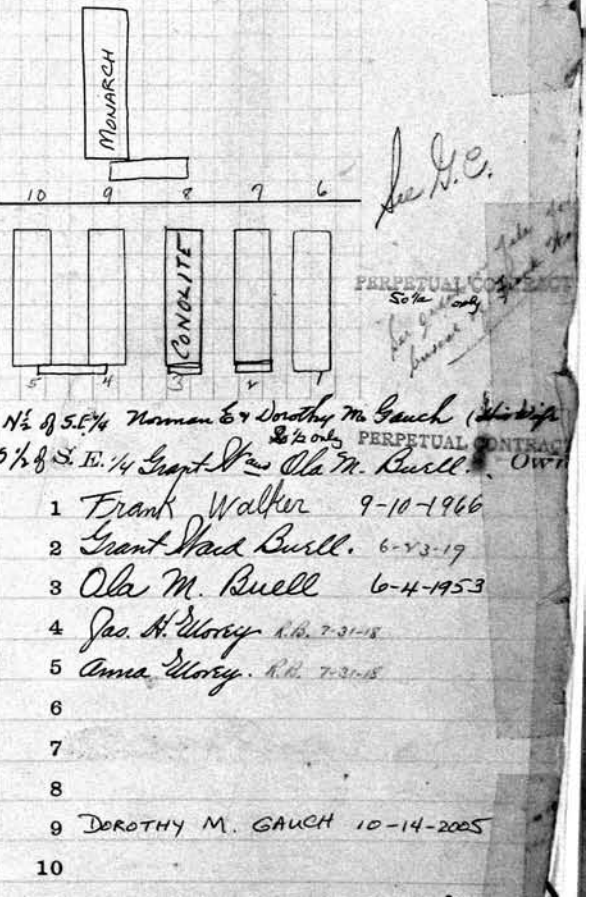 MONARCH
10 9 8 7 6
See G.C.
CONOLITE
PERPETUAL CONTRACT
So½ only
See
5 4 3 2 1
N½ of S.E.¼ Norman E & Dorothy M. Gauch (His Wife
So½ only PERPETUAL CONTRACT
S½ of S.E.¼ Grant W and Ola M. Buell. Own
1 Frank Walker 9-10-1966
2 Grant Ward Buell. 6-23-19
3 Ola M. Buell 6-4-1953
4 Jas. H. R.B. 7-31-18
5 Anna R.B. 7-31-18
6
7
8
9 DOROTHY M. GAUCH 10-14-2005
10